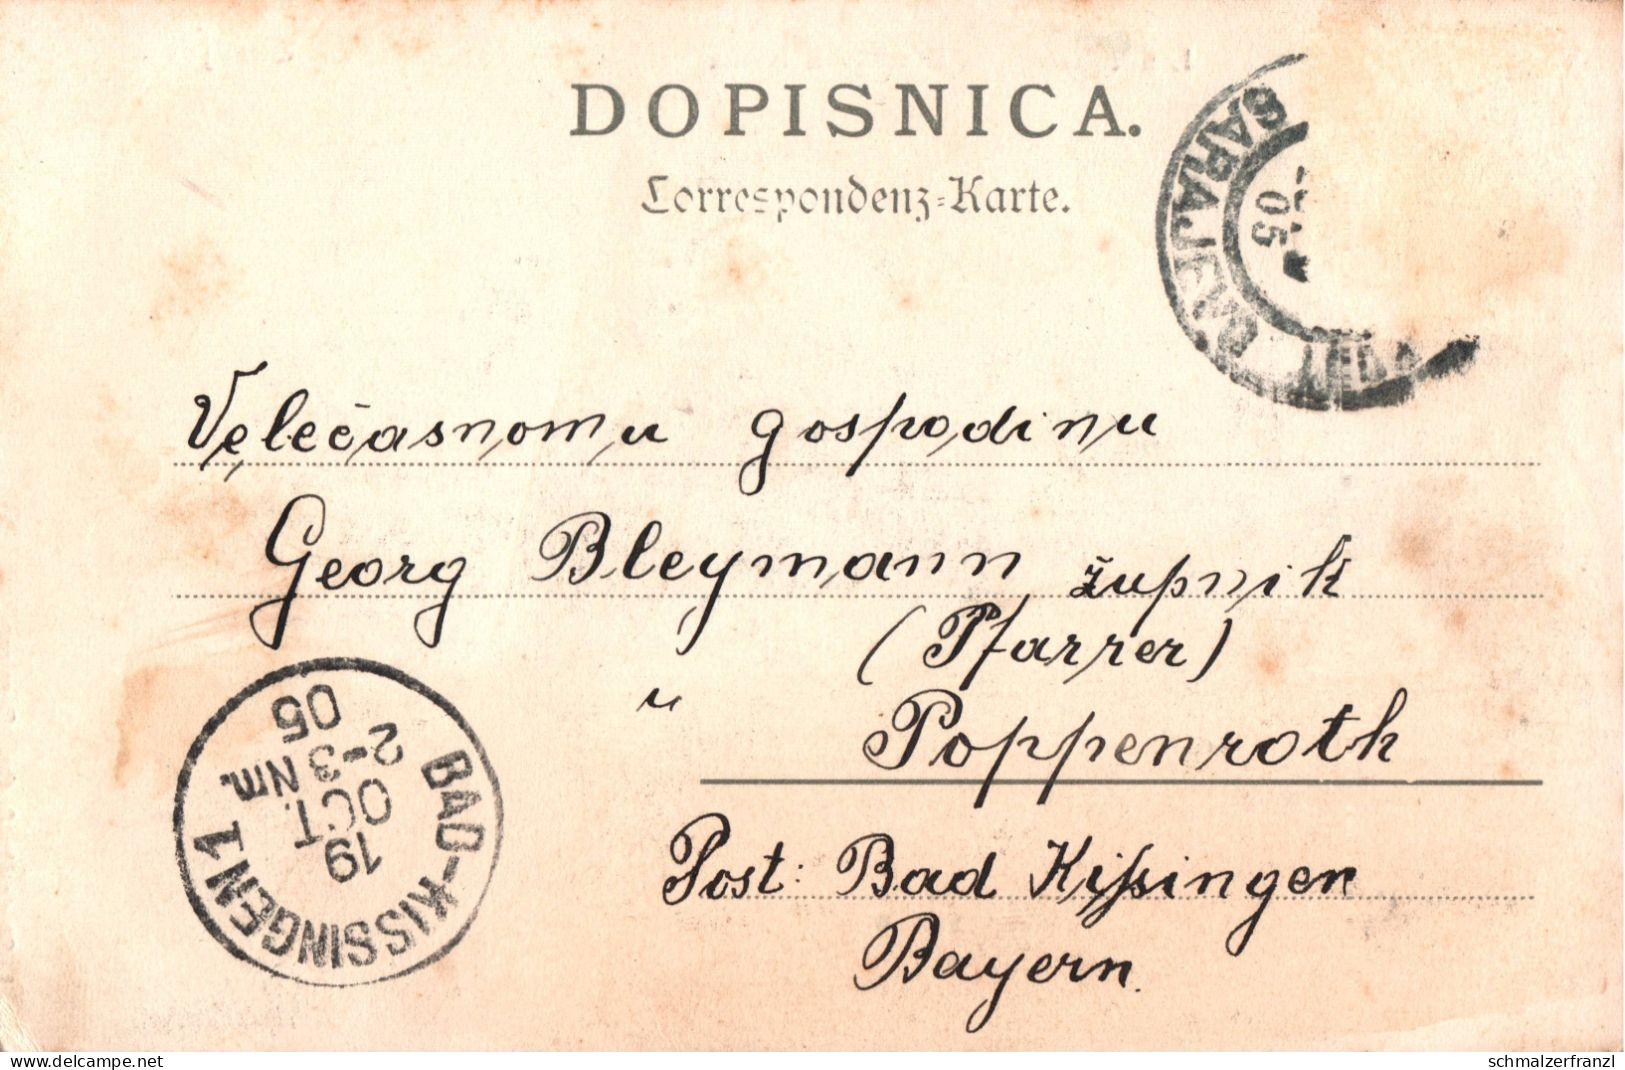 DOPISNICA.
Correspondenz-Karte.
SARAJEVO
05
Velečasnomu gospodinu
Georg Bleymann župnik
(Pfarrer)
u Poppenroth
Post: Bad Kissingen
Bayern.
BAD-KISSINGEN 1
19
OCT.
2-3 Nm.
05
delcampe.net
schmalzerfranzl